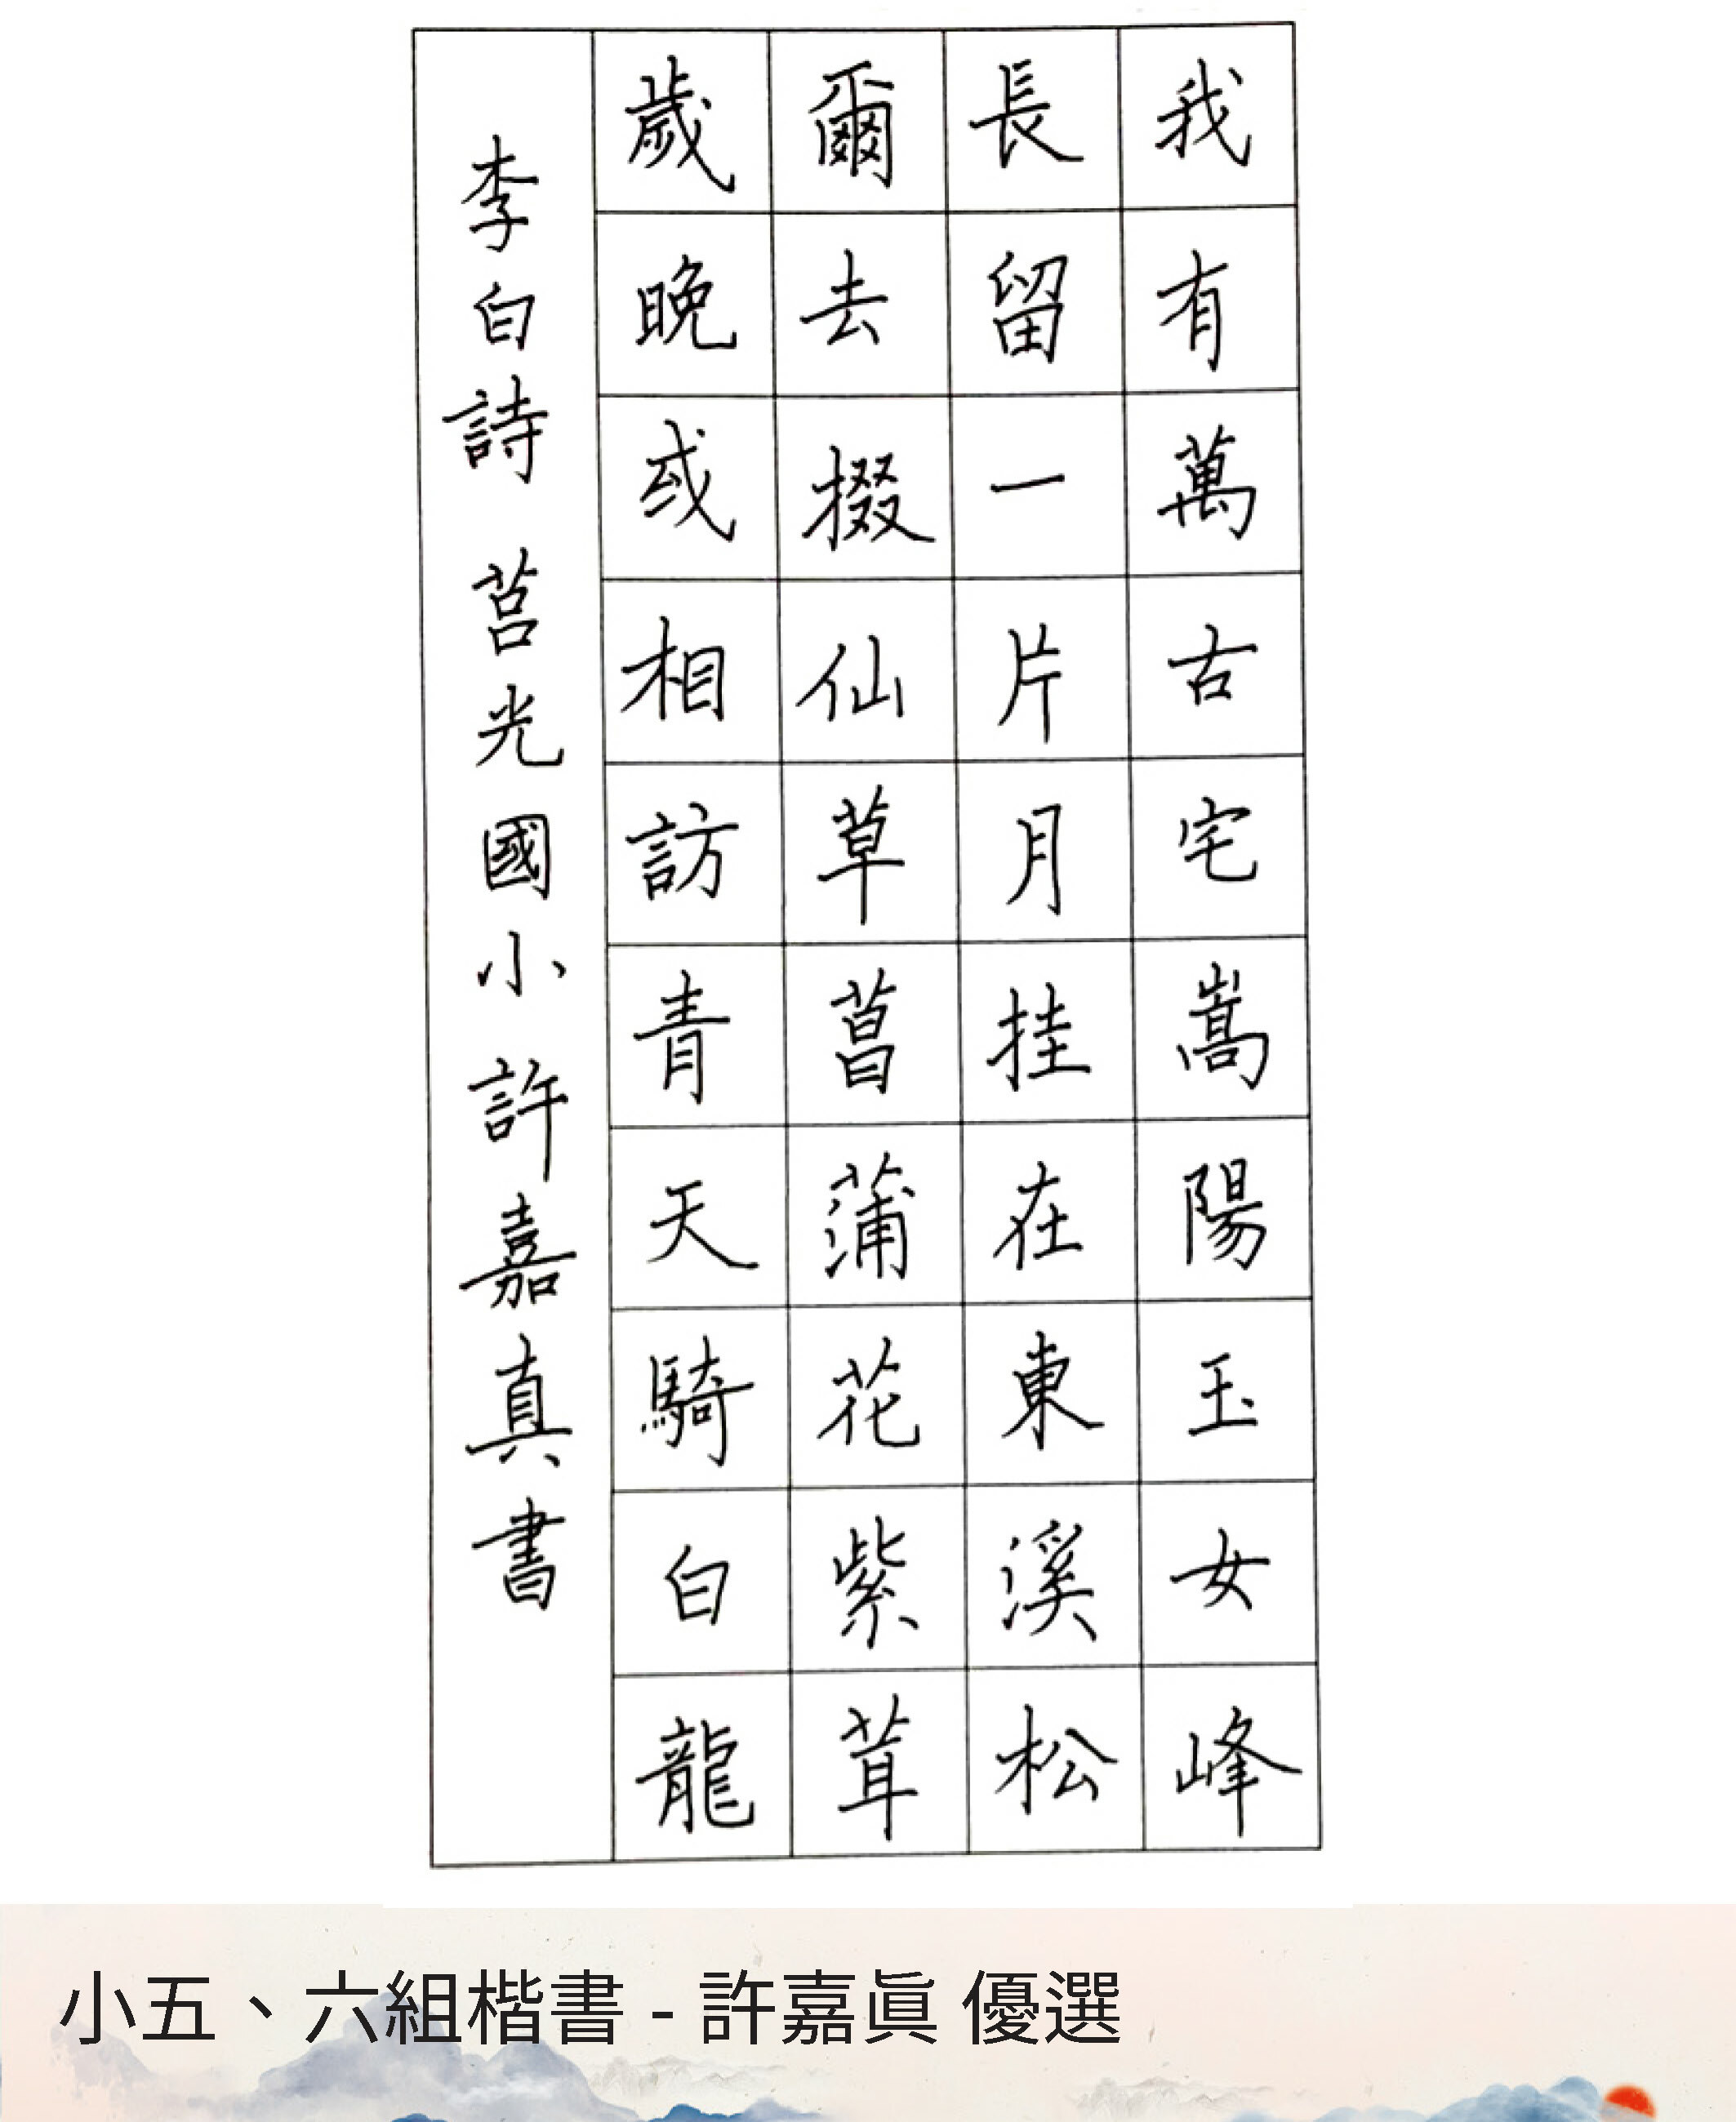 我有萬古宅嵩陽玉女峰
長留一片月挂在東溪松
爾去掇仙草菖蒲花紫茸
歲晚或相訪青天騎白龍
李白詩 莒光國小許嘉真書
小五、六組楷書 - 許嘉眞 優選